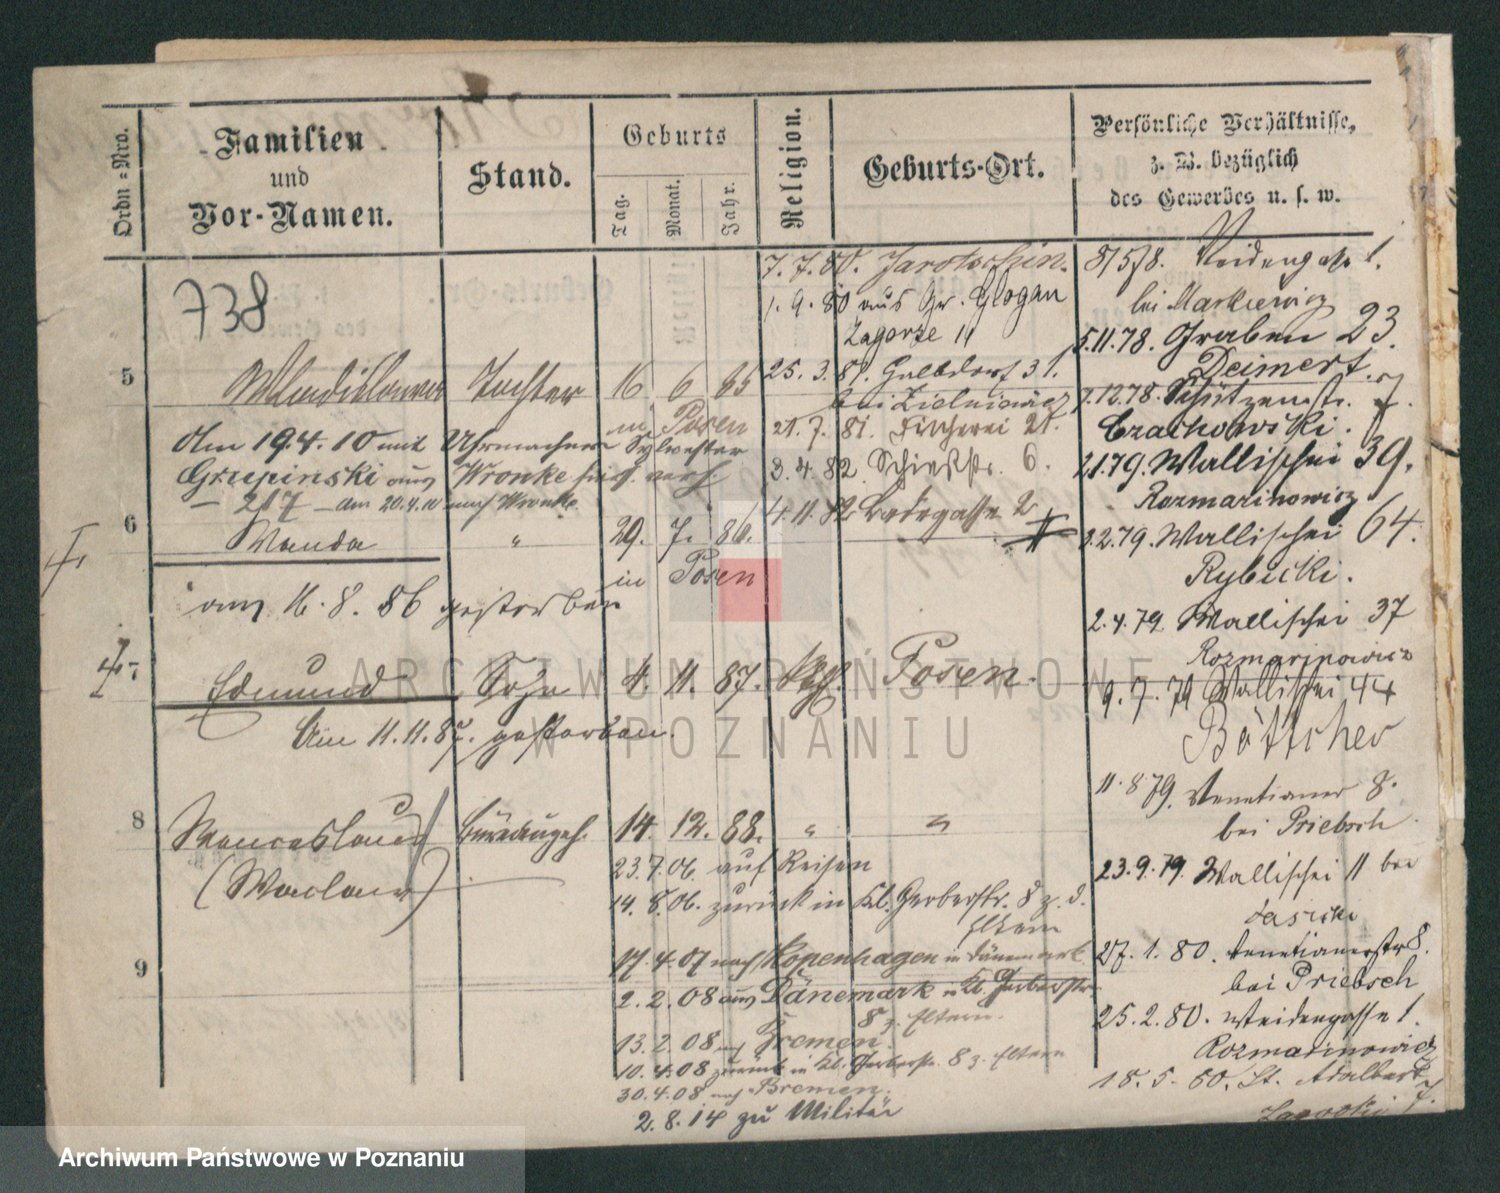 Ordn=Nro.
Familien
und
Vor-Namen.
Stand.
Geburts
Tag.
Monat.
Jahr.
Religion.
Geburts-Ort.
Persönliche Verhältnisse,
z. B. bezüglich
des Gewerbes u. s. w.
738
5
Wladislawa Tochter 16 6 85
in Posen
Am 19.4.10 mit Uhrmacher Sylwester
Grupinski aus Wronke
– 217 – am 20.4.10 nach Wronke
6
Wanda " 29. 7. 86.
in Posen
am 16.8.86 gestorben
7
Edmund Sohn 4. 11. 87. Posen.
Am 11.11.87. gestorben.
8
Wenceslaus 14. 12. 88. " "
(Waclaw)
23.7.06. auf Reisen
14.8.06. zurück in Kl. Gerberstr. 8 z. d.
Eltern
9
17.4.07 nach Kopenhagen in Dänemark
2.2.08 aus Dänemark in Kl. Gerberstr.
8 z. Eltern.
13.2.08 nach Bremen.
10.4.08 zurück in Kl. Gerberstr. 8 z. Eltern
30.4.08 nach Bremen.
2.8.14 zu Militär
7.7.80. Jarotschin.
1.9.80 aus Gr. Glogau
Zagorze 11
25.3.81.
bei Zielniewicz
21.7.81. Fischerei 21.
3.4.82. Schießstr. 6.
4.11.82 Badegasse 2
8/5/78. Weidengasse 1.
bei Markiewicz
5.11.78. Graben 23.
Deimert.
7.12.78. Schützenstr.
Czachowski.
2.1.79. Wallischei 39.
Rozmarinowicz
2.2.79. Wallischei 64.
Rybicki.
2.4.79 Wallischei 37
Rozmarinowicz
9.7.79 Wallischei 44
Böttcher
11.8.79. Venetianer 8.
bei Priebsch
23.9.79. Wallischei 11 bei
27.1.80. Venetianerstr 8.
bei Priebsch
25.2.80. Weidengasse 1.
Rozmarinowicz
18.5.80. St. Adalbert
7.
ARCHIWUM PAŃSTWOWE
W POZNANIU
Archiwum Państwowe w Poznaniu